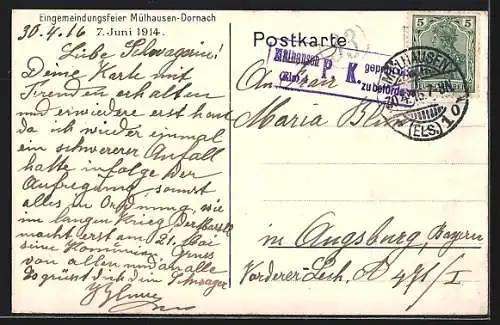 Eingemeindungsfeier Mülhausen-Dornach
7. Juni 1914.
30.4.16
Liebe Schwägerin!
Deine Karte mit
Freuden erhalten
und erwiedere erst heut
da ich wieder einmal
ein schwererer Anfall
hatte infolge der
Aufregung, sonst
alles in Ordnung, wie
im langen Krieg. Der
macht erst am 21. Mai
seine Komunion. Gruss
von allen und an alle
Es grüsst dich dein Schwager
Postkarte
Mülhausen
(Els)
P. K.
geprüft und
zu befördern
5 5
MÜLHAUSEN
30.4.16
(ELS.)
An Frau
Maria
in Augsburg, Bayern
Vorderer-Lech, A 471/I